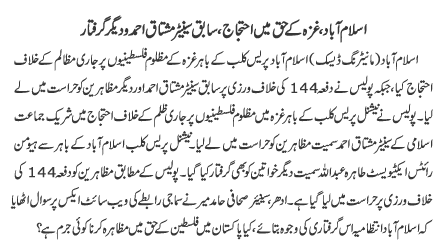 اسلام آباد، غزہ کے حق میں احتجاج، سابق سینیٹر مشتاق احمد و دیگر گرفتار
اسلام آباد (مانیٹرنگ ڈیسک) اسلام آباد پریس کلب کے باہر غزہ کے مظلوم فلسطینیوں پر جاری مظالم کے خلاف
احتجاج کیا، جبکہ پولیس نے دفعہ 144 کی خلاف ورزی پر سابق سینیٹر مشتاق احمد اور دیگر مظاہرین کو حراست میں لے
لیا۔ پولیس نے نیشنل پریس کلب کے باہر غزہ میں مظلوم فلسطینیوں پر جاری ظلم کے خلاف احتجاج میں شریک جماعت
اسلامی کے سینیٹر مشتاق احمد سمیت مظاہرین کو حراست میں لے لیا۔ نیشنل پریس کلب اسلام آباد کے باہر سے ہیومن
رائٹس ایکٹیویسٹ طاہرہ عبداللہ سمیت دیگر خواتین کو بھی گرفتار کیا گیا۔ پولیس کے مطابق مظاہرین کو دفعہ 144 کی
خلاف ورزی پر حراست میں لیا گیا ہے۔ ادھر، سینیئر صحافی حامد میر نے سماجی رابطے کی ویب سائٹ ایکس پر سوال اٹھایا
کہ اسلام آباد انتظامیہ اس گرفتاری کی وجوہ بتائے، کیا پاکستان میں فلسطین کے حق میں مظاہرہ کرنا کوئی جرم ہے؟